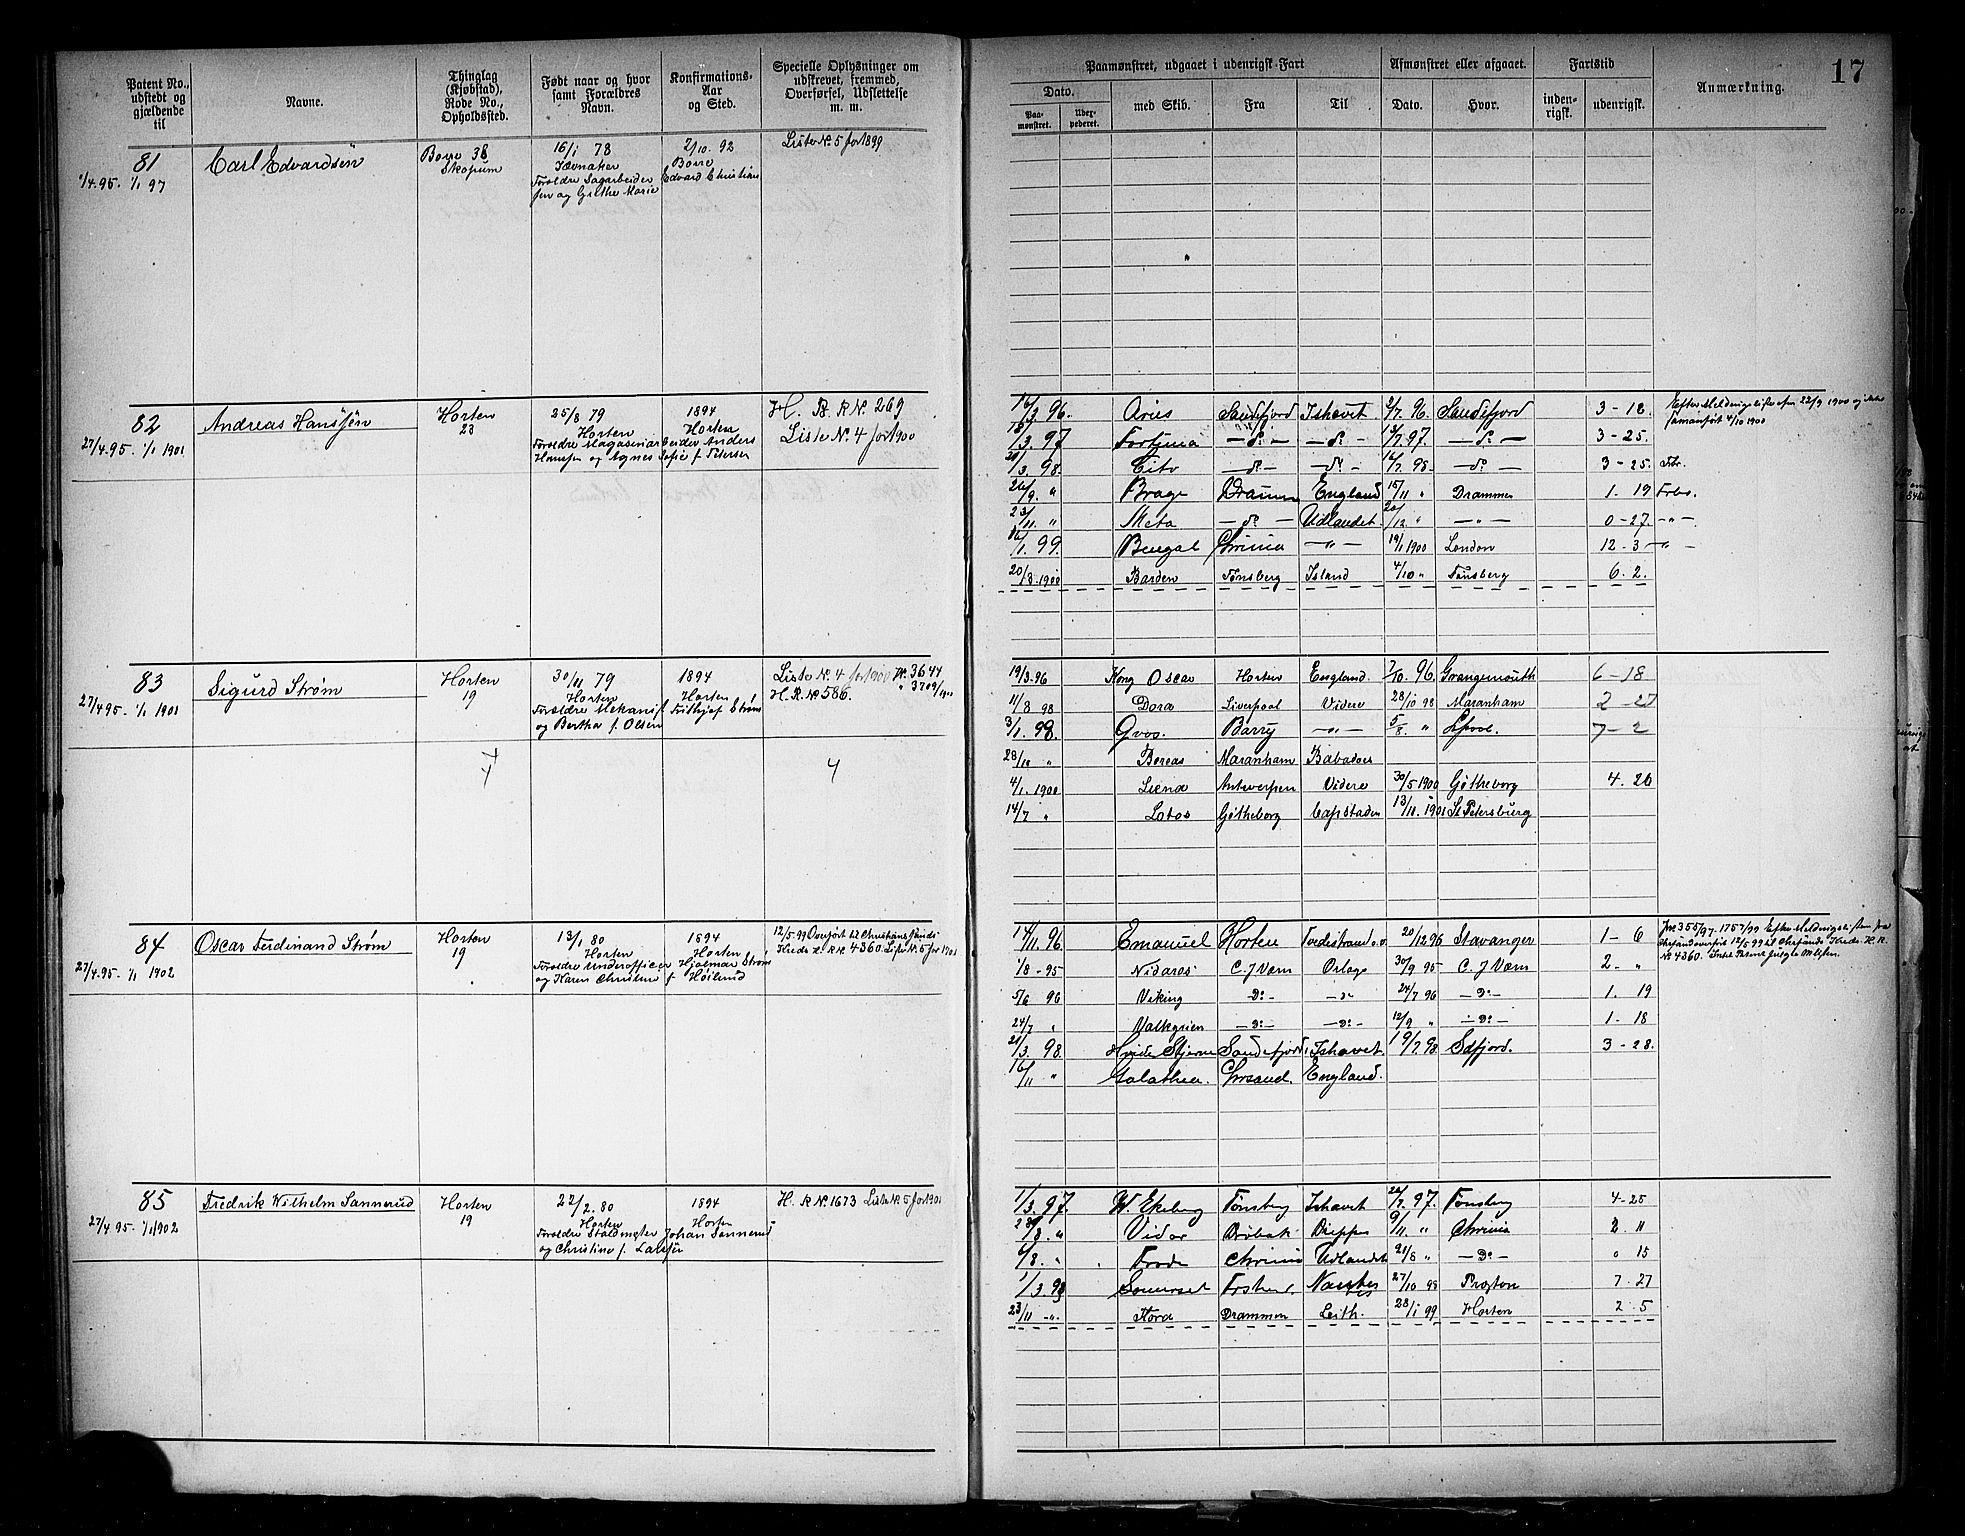 17
Patent No., udstedt og gjældende til
Navne.
Thinglag (Kjøbstad), Rode No., Opholdssted.
Født naar og hvor samt Forældres Navn.
Konfirmations-Aar og Sted.
Specielle Oplysninger om udskrevet, fremmed, Overførsel, Udslettelse m. m.
Paamønstret, udgaaet i udenrigsk Fart
Afmønstret eller afgaaet.
Fartstid
Anmærkning.
Dato.
med Skib.
Fra
Til
Dato.
Hvor.
inden-rigsk.
udenrigsk.
Paa-mønstret.
81
1/4.95. 1/1 97
Carl Edvardsen
Borre 38
Skopum
16/1 78
Jævnaker
Forældre Sagarbeider Edvard Christian
sen og Grethe Marie
2/10. 92
Borre
Liste No. 5 for 1899
82
27/4.95. 1/1 1901
Andreas Hanssen
Horten
23
25/8 79
Horten
Forældre Magasinarbeider Anders
Hanssen og Agnes Sofie f. Petersen
1894
Horten
H. B. R No. 269
Liste No. 4 for 1900
16/3 96. Aries Sandefjord Ishavet 2/7. 96. Sandefjord 3-18.
Efter Meldingsliste afm 22/9 1900
4/10 1900
/3. 97 Fortuna — do — — do — 13/7 97. — do — 3-25.
/3 98. Cito — do — — do — 16/7. 98 — do — 3-25.
26/9. " Brage Drammen England 15/11 " Drammen 1. 19
23/11. " Meta — do — Udlandet. 20/12 " — " — 0-27. — " —
/1. 99. Bengal Chrnia — " — 19/1 1900 London 12-3 — " —
20/8.1900 Barden Tønsberg Island 4/10 " Tønsberg 6. 2.
83
27/4 95. 1/1 1901
Sigurd Strøm
Horten
19
30/11 79
Horten
Forældre Mekanist Frithjof Strøm
og Bertha f. Olsen
1894
Horten
Liste No. 4 for 1900 3644
H. R. No 586. " 3709/1901
4
19/3.96 Kong Oscar Horten England. 7/10. 96. Grangemouth 6-18
11/8 98 Dora Liverpool Videre 28/10 98 Maranham 2-27
3/1. 98. Gvos. Barry — " — 5/8. " Lpool. 7-2
28/10 " Boreas Maranham Babados
4/1. 1900 Liena Antwerpen Videre 30/5 1900 Gøtheborg 4. 26
14/7 " Lotos Gøtheborg Capstaden 13/10. 1901 St Petersburg
84
27/4-95. 1/1 1902
Oscar Ferdinand Strøm
Horten
19
13/1 80
Horten
Forældre Underofficer Hjalmar Strøm
og Karen Christine f Høilund
1894
Horten
12/5.99 Overført til Christianssands
Kreds R No 4360. Liste No. 5 for 1901
14/11. 96 Emanuel Horten Tvedestrand o.v 20/12 96 Stavanger 1-6
Jno 355/97. 1757/99 Efter Meldingslisten fra
12/5 99 til Chrsands Kreds H. R.
No 4360.
1/8-95 Nidaros C. J Værn Orlogs 30/9 95 C. J Værn 2- "
5/6 96 Viking — Do — — Do — 24/7 96 — Do — 1. 19
24/7 " Valkyrien — Do — — Do — 12/9 " — Do — 1-18
21/3. 98. Hvide Stjerne Sandefjord, Ishavet. 19/7. 98 Sdfjord. 3-28.
16/11 " Galathea. Chrsand. England.
85
27/4 95. 1/1 1902
Fredrik Wilhelm Sannerud
Horten
19
22/2. 80
Horten
Forældre Staldmester Johan Sannerud
og Christine f. Larsen
1894
Horten
H. R No. 1673 Liste No. 5 for 1901
1/3. 97. W. Ekeberg Tønsberg Ishavet 22/7. 97. Tønsberg 4-25
" Vidar Drøbak Dieppe 9/11. " Chrnia 2. 11
6/8. " Frode Chrnia Udlandet 21/8 " — Do — " 15
1/3. 98 Somerset Nantes 27/10 98 Preston 7. 27
23/11 — " — Hora Drammen Leith. 28/1 99 Horten 2. 5